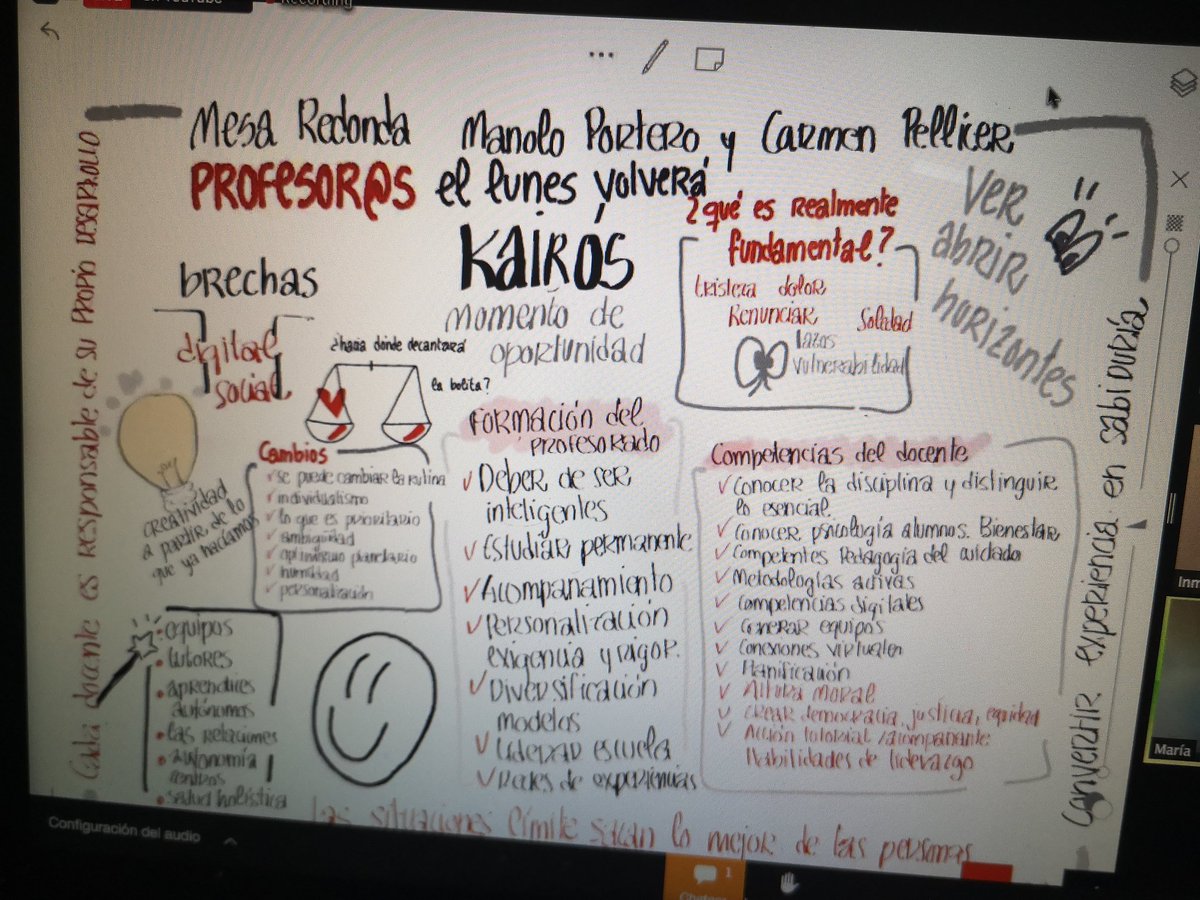 Recording
Mesa Redonda Manolo Portero y Carmen Pellicer
PROFESOR@S el lunes volverá
KAIRÓS
momento de
oportunidad
¿qué es realmente
fundamental?
tristeza dolor
Renunciar Soledad
lazos
vulnerabilidad
Ver
abrir
horizontes
brechas
digital
social
¿hacia dónde decantará
la bolita?
Cada docente es responsable de su propio desarrollo
creatividad
a partir de lo
que ya hacíamos
Cambios
✓ se puede cambiar la rutina
✓ individualismo
✓ lo que es prioritario
✓ ambigüedad
✓ optimismo planetario
✓ humildad
✓ personalización
• equipos
• tutores
• aprendices
autónomos
• las relaciones
• autonomía
centros
• salud holística
Formación del
profesorado
✓ Deber de ser
inteligentes
✓ Estudiar permanente
✓ Acompañamiento
✓ Personalización
exigencia y rigor.
✓ Diversificación
modelos
✓ Liderar escuela
✓ Redes de experiencias
Competencias del docente
✓ Conocer la disciplina y distinguir
lo esencial.
✓ Conocer psicología alumnos. Bienestar
✓ Competentes Pedagogía del cuidado
✓ Metodologías activas
✓ Competencias digitales
✓ Generar equipos
✓ Conexiones virtuales
✓ Planificación
✓ Altura moral
✓ Crear democracia, justicia, equidad
✓ Acción tutorial / acompañante
Habilidades de liderazgo
Convertir experiencia en sabiduría
Las situaciones límite sacan lo mejor de las personas
Configuración del audio
1
Inm
María